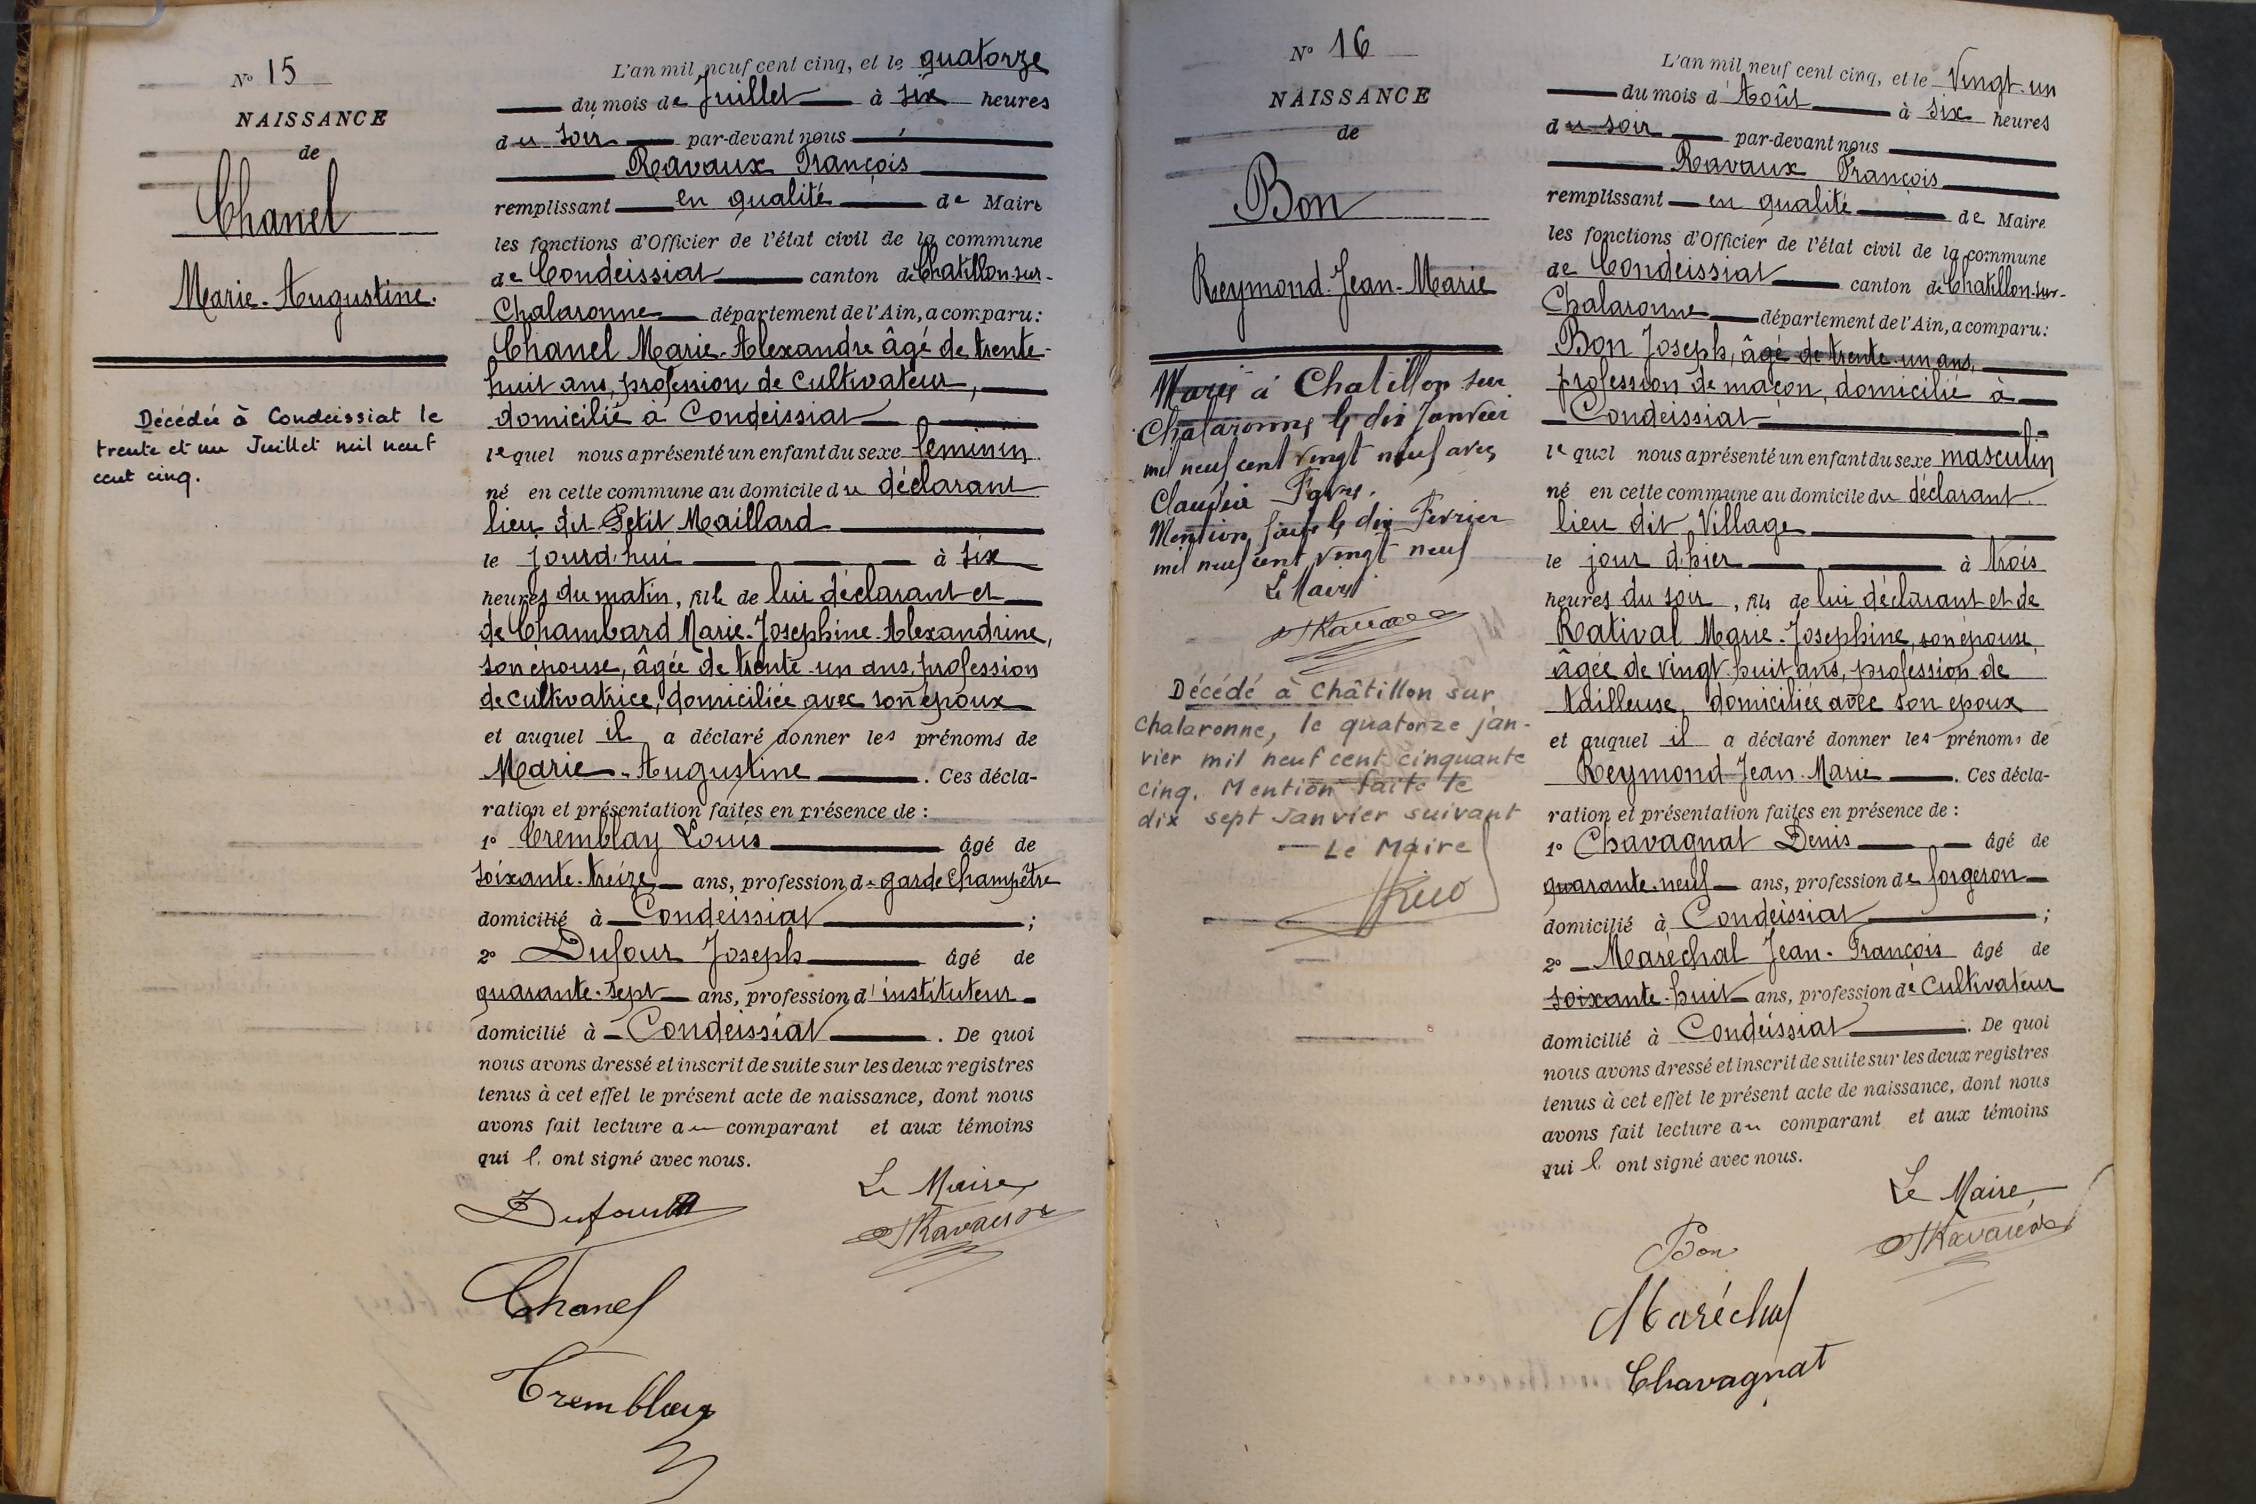 N° 15
NAISSANCE
de
Chanel
Marie-Augustine.
Décédée à Condeissiat le
trente et un Juillet mil neuf
cent cinq.
L'an mil neuf cent cinq, et le quatorze
du mois de Juillet à six heures
du soir par-devant nous
Ravaux François
remplissant en qualité de Maire
les fonctions d'Officier de l'état civil de la commune
de Condeissiat canton de Chatillon-sur-
Chalaronne département de l'Ain, a comparu:
Chanel Marie-Alexandre âgé de trente-
huit ans, profession de cultivateur,
domicilié à Condeissiat
lequel nous a présenté un enfant du sexe féminin
né en cette commune au domicile du déclarant
lieu dit Petit Maillard
le jourd'hui à six
heures du matin, fille de lui déclarant et
de Chambard Marie-Josephine-Alexandrine,
son épouse, âgée de trente-un ans, profession
de cultivatrice, domiciliée avec son époux
et auquel il a déclaré donner les prénoms de
Marie-Augustine. Ces décla-
ration et présentation faites en présence de :
1° Tremblay Louis âgé de
soixante-treize ans, profession de garde champêtre
domicilié à Condeissiat ;
2° Dufour Joseph âgé de
quarante-sept ans, profession d'instituteur
domicilié à Condeissiat. De quoi
nous avons dressé et inscrit de suite sur les deux registres
tenus à cet effet le présent acte de naissance, dont nous
avons fait lecture au comparant et aux témoins
qui l'ont signé avec nous.
Le Maire
Dufour
Ravaux
Chanel
Tremblay
N° 16
NAISSANCE
de
Bon
Reymond-Jean-Marie
Marié à Chatillon sur
Chalaronne le dix Janvier
mil neuf cent vingt neuf avec
Claudia
Mention faite le dix Fevrier
mil neuf cent vingt neuf
Le Maire
Ravaux
Décédé à Châtillon sur
Chalaronne, le quatorze jan-
vier mil neuf cent cinquante
cinq. Mention faite le
dix sept Janvier suivant
Le Maire
L'an mil neuf cent cinq, et le Vingt-un
du mois d'Août à six heures
du soir par-devant nous
Ravaux François
remplissant en qualité de Maire
les fonctions d'Officier de l'état civil de la commune
de Condeissiat canton de Chatillon-sur-
Chalaronne département de l'Ain, a comparu:
Bon Joseph, âgé de trente-un ans,
profession de maçon, domicilié à
Condeissiat
lequel nous a présenté un enfant du sexe masculin
né en cette commune au domicile du déclarant
lieu dit Village
le jour d'hier à trois
heures du soir, fils de lui déclarant et de
Rativat Marie-Josephine, son épouse,
âgée de vingt-huit ans, profession de
tailleuse, domiciliée avec son époux
et auquel il a déclaré donner les prénoms de
Reymond-Jean-Marie. Ces décla-
ration et présentation faites en présence de :
1° Chavagnat Denis âgé de
quarante-neuf ans, profession de forgeron
domicilié à Condeissiat ;
2° Maréchal Jean-François âgé de
soixante-huit ans, profession de cultivateur
domicilié à Condeissiat. De quoi
nous avons dressé et inscrit de suite sur les deux registres
tenus à cet effet le présent acte de naissance, dont nous
avons fait lecture au comparant et aux témoins
qui l'ont signé avec nous.
Le Maire
Bon
Ravaux
Maréchal
Chavagnat